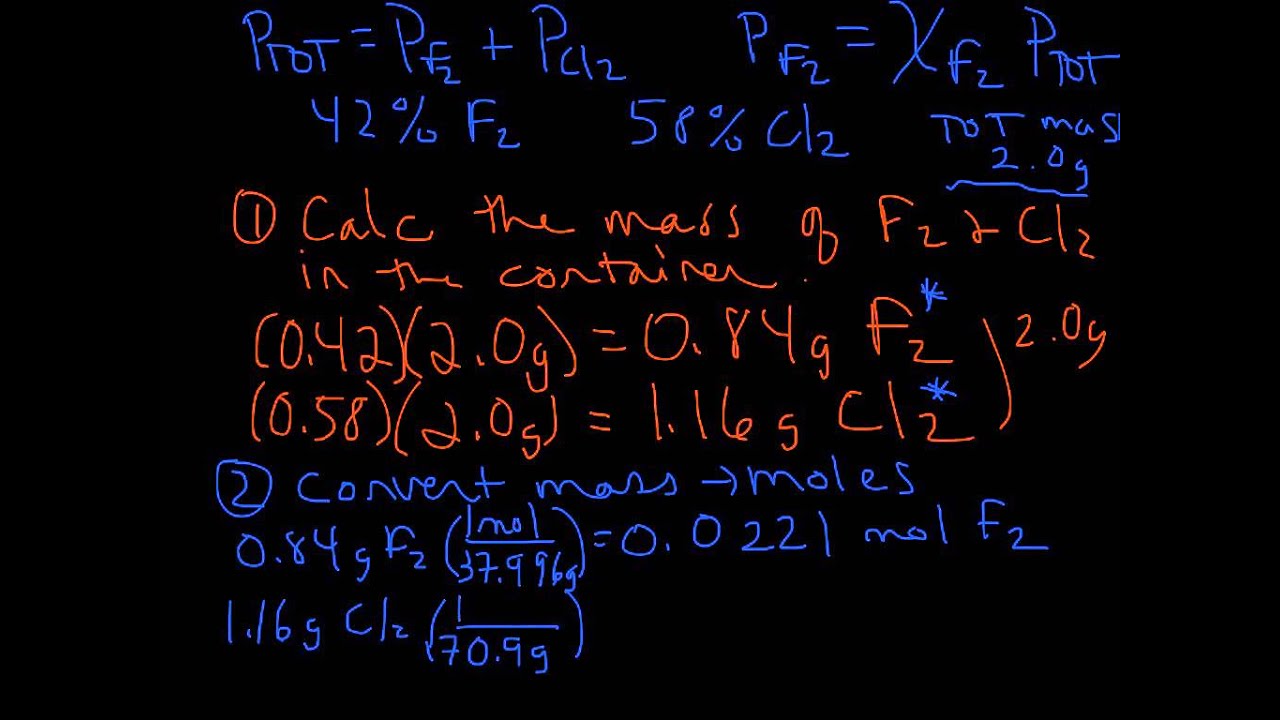 P_TOT = P_F₂ + P_Cl₂ P_F₂ = χ_F₂ P_TOT
42% F₂ 58% Cl₂ TOT mas
2.0g
① Calc the mass of F₂ & Cl₂
in the container.
(0.42)(2.0g) = 0.84g F₂* ) 2.0g
(0.58)(2.0g) = 1.16g Cl₂*
② Convert mass → moles
0.84g F₂ (1mol / 37.996g) = 0.0221 mol F₂
1.16g Cl₂ (1 / 70.9g)